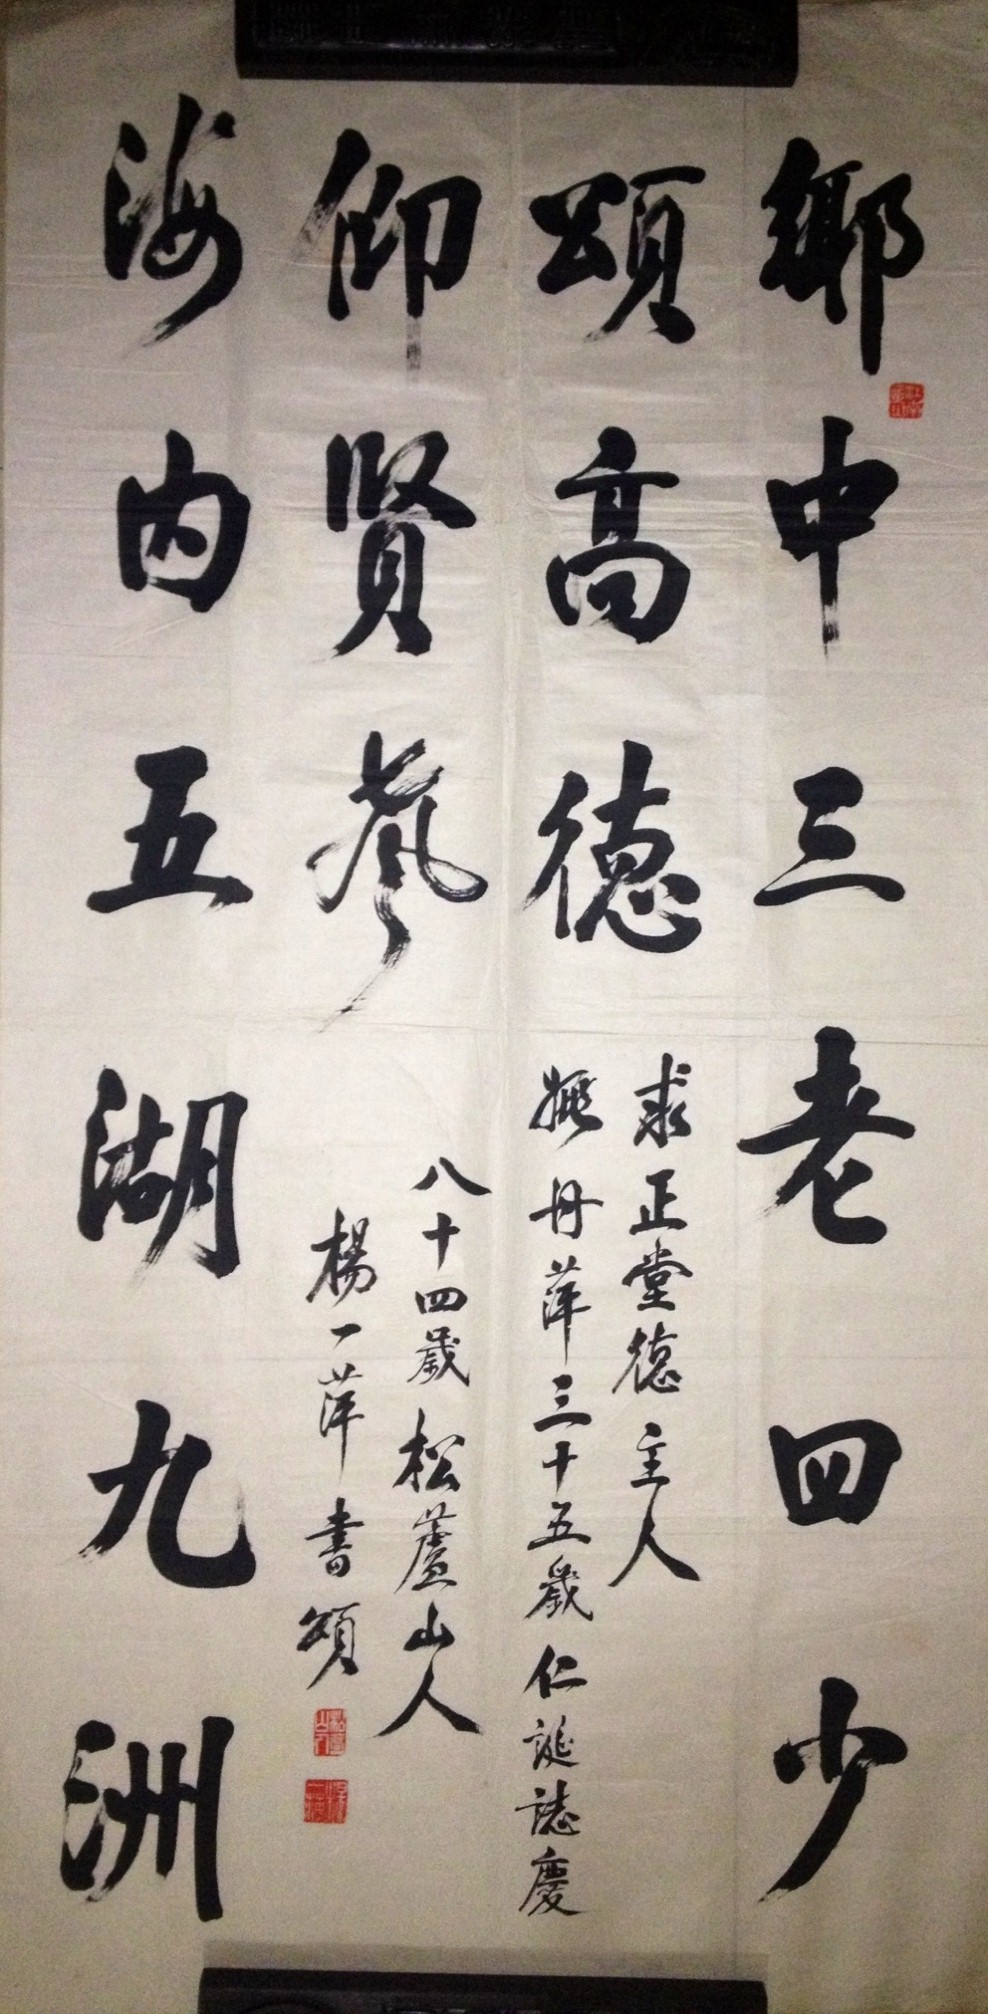 鄉中三老四少
頌高德
仰賢風
海內五湖九洲
求正堂德主人
姚丹萍三十五歲仁誕誌慶
八十四歲松蘆山人
楊一萍書頌